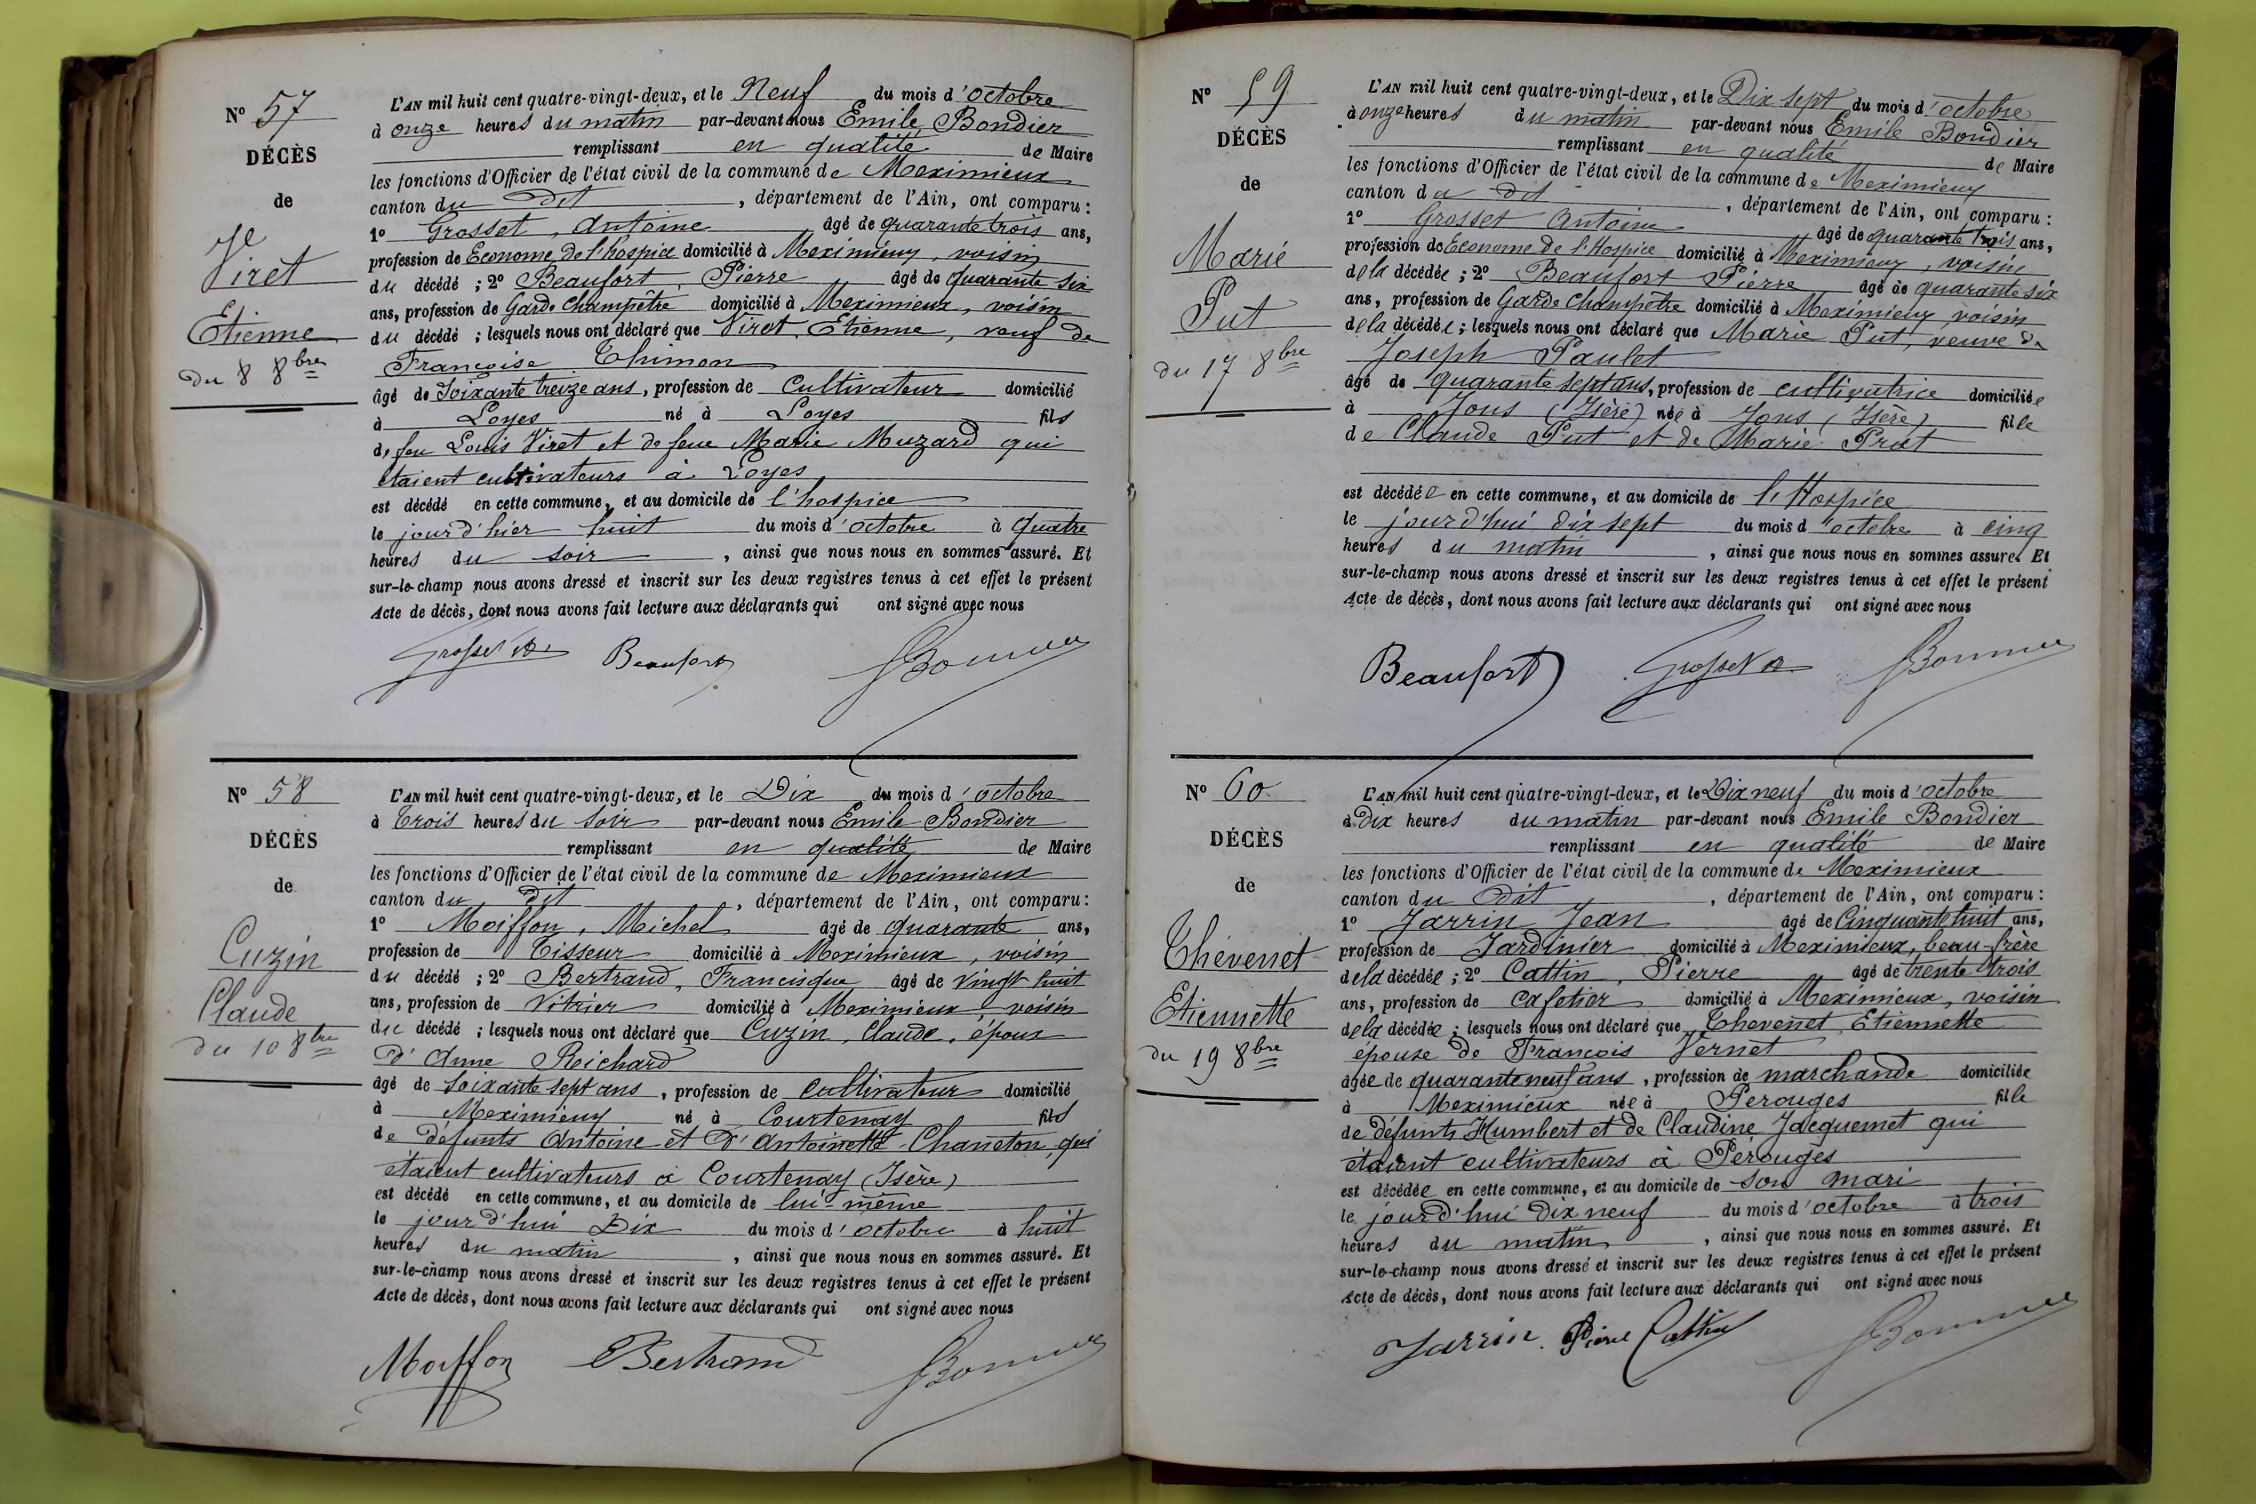 N° 57
DÉCÈS
de
Viret
Etienne
du 8 8bre
L'AN mil huit cent quatre-vingt-deux, et le Neuf du mois d'octobre
à onze heures du matin par-devant nous Emile Bondier
remplissant en qualité de Maire
les fonctions d'Officier de l'état civil de la commune de Meximieux
canton du Dit, département de l'Ain, ont comparu :
1° Grosset, Antoine âgé de quarante trois ans,
profession de Econome de l'hospice domicilié à Meximieux, voisin
du décédé ; 2° Beaufort, Pierre âgé de quarante six
ans, profession de Garde Champêtre domicilié à Meximieux, voisin
du décédé ; lesquels nous ont déclaré que Viret, Etienne, veuf de
Françoise Thimon
âgé de Soixante treize ans, profession de Cultivateur domicilié
à Loyes né à Loyes fils
de feu Louis Viret et de feue Marie Muzard qui
étaient cultivateurs à Loyes
est décédé en cette commune, et au domicile de l'hospice
le jour d'hier huit du mois d'octobre à quatre
heures du soir, ainsi que nous nous en sommes assuré. Et
sur-le-champ nous avons dressé et inscrit sur les deux registres tenus à cet effet le présent
Acte de décès, dont nous avons fait lecture aux déclarants qui ont signé avec nous
Grosset Beaufort
N° 58
DÉCÈS
de
Cuzin
Claude
du 10 8bre
L'AN mil huit cent quatre-vingt-deux, et le Dix du mois d'octobre
à trois heures du soir par-devant nous Emile Bondier
remplissant en qualité de Maire
les fonctions d'Officier de l'état civil de la commune de Meximieux
canton du Dit, département de l'Ain, ont comparu :
1° Moiffon, Michel âgé de quarante ans,
profession de Tisseur domicilié à Meximieux, voisin
du décédé ; 2° Bertrand, Francisque âgé de vingt huit
ans, profession de Vitrier domicilié à Meximieux, voisin
du décédé ; lesquels nous ont déclaré que Cuzin, Claude, époux
d'Anne Richard
âgé de soixante sept ans, profession de cultivateur domicilié
à Meximieux né à Courtenay fils
de défunts Antoine et d'Antoinette Chaneton, qui
étaient cultivateurs à Courtenay (Isère)
est décédé en cette commune, et au domicile de lui-même
le jour d'hui Dix du mois d'octobre à huit
heures du matin, ainsi que nous nous en sommes assuré. Et
sur-le-champ nous avons dressé et inscrit sur les deux registres tenus à cet effet le présent
Acte de décès, dont nous avons fait lecture aux déclarants qui ont signé avec nous
Moiffon Bertrand
N° 59
DÉCÈS
de
Marie
Put
du 17 8bre
L'AN mil huit cent quatre-vingt-deux, et le Dix sept du mois d'octobre
à onze heures du matin par-devant nous Emile Bondier
remplissant en qualité de Maire
les fonctions d'Officier de l'état civil de la commune de Meximieux
canton du Dit, département de l'Ain, ont comparu :
1° Grosset Antoine âgé de quarante trois ans,
profession de Econome de l'Hospice domicilié à Meximieux, voisin
de la décédée ; 2° Beaufort Pierre âgé de quarante six
ans, profession de Garde Champêtre domicilié à Meximieux voisin
de la décédée ; lesquels nous ont déclaré que Marie Put, veuve de
Joseph Paulet
âgé de quarante sept ans, profession de cultivatrice domiciliée
à Jons (Isère) née à Jons (Isère) fille
de Claude Put et de Marie Prat
est décédée en cette commune, et au domicile de l'Hospice
le jour d'hui dix sept du mois d'octobre à cinq
heures du matin, ainsi que nous nous en sommes assuré. Et
sur-le-champ nous avons dressé et inscrit sur les deux registres tenus à cet effet le présent
Acte de décès, dont nous avons fait lecture aux déclarants qui ont signé avec nous
Beaufort Grosset
N° 60
DÉCÈS
de
Thévenet
Etiennette
du 19 8bre
L'AN mil huit cent quatre-vingt-deux, et le Dix neuf du mois d'octobre
à Dix heures du matin par-devant nous Emile Bondier
remplissant en qualité de Maire
les fonctions d'Officier de l'état civil de la commune de Meximieux
canton du Dit, département de l'Ain, ont comparu :
1° Jarrin Jean âgé de Cinquante huit ans,
profession de Jardinier domicilié à Meximieux, beau-frère
de la décédée ; 2° Cattin, Pierre âgé de trente trois
ans, profession de cafetier domicilié à Meximieux, voisin
de la décédée ; lesquels nous ont déclaré que Thevenet, Etiennette
épouse de François Vernet
âgée de quarante neuf ans, profession de marchande domiciliée
à Meximieux née à Pérouges fille
de défunts Humbert et de Claudine Jacquemet qui
étaient cultivateurs à Pérouges
est décédée en cette commune, et au domicile de son mari
le jour d'hui Dix neuf du mois d'octobre à trois
heures du matin, ainsi que nous nous en sommes assuré. Et
sur-le-champ nous avons dressé et inscrit sur les deux registres tenus à cet effet le présent
Acte de décès, dont nous avons fait lecture aux déclarants qui ont signé avec nous
Jarrin Pierre Cattin